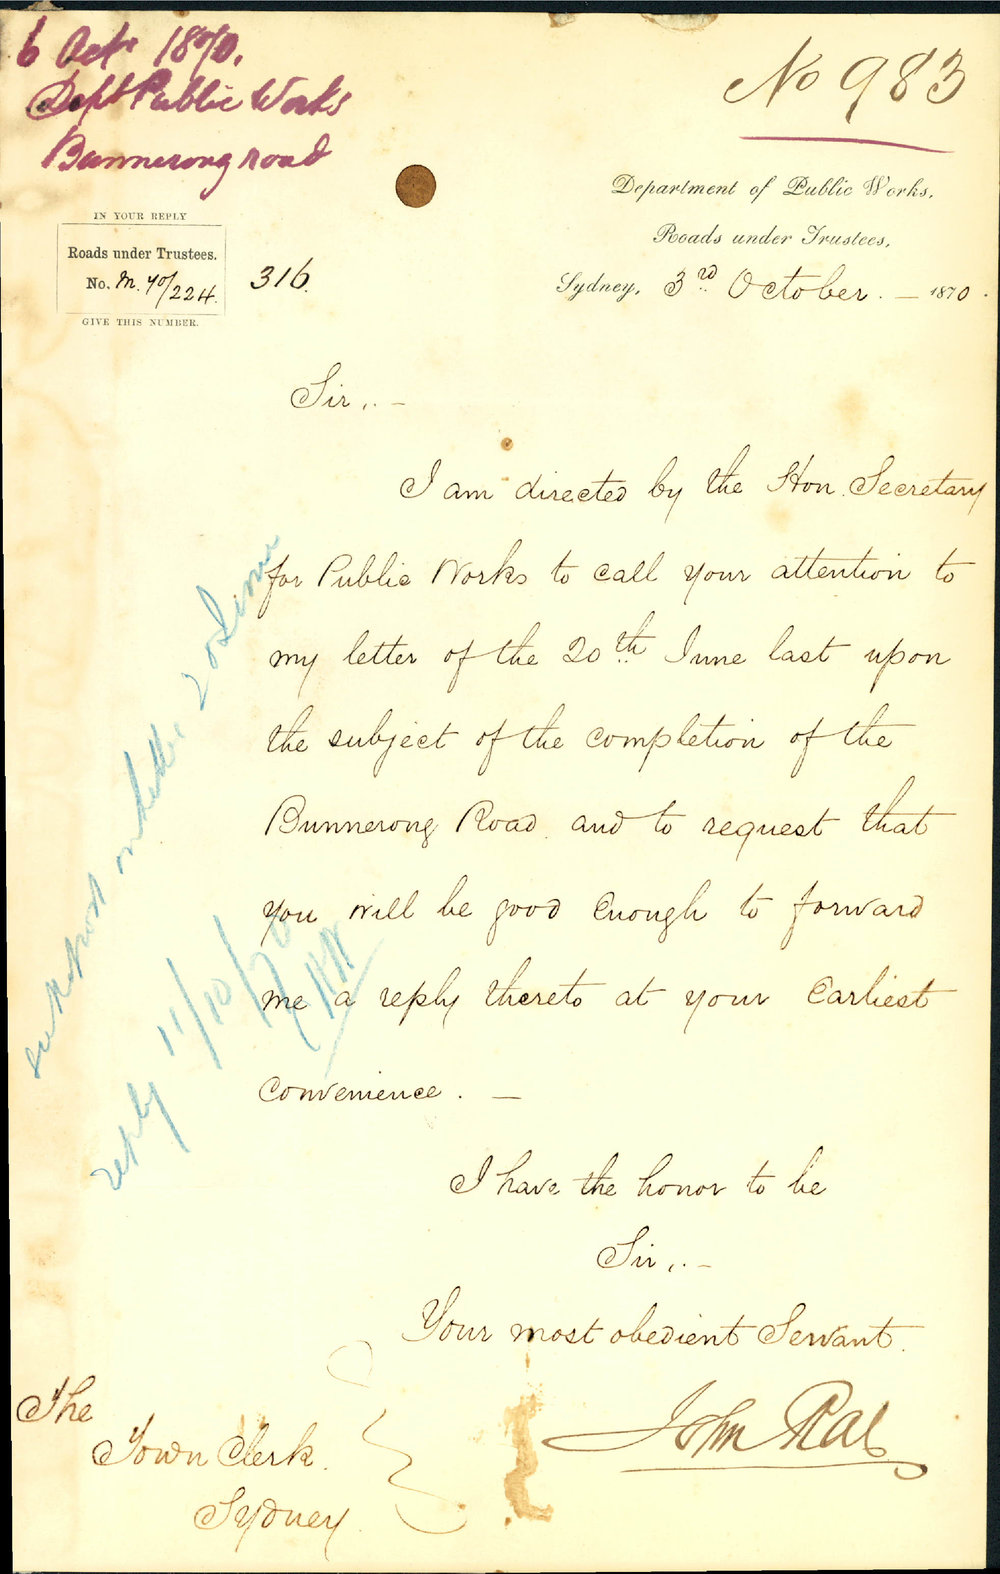 6 Oct. 1870.
Dept Public Works
Bunnerong road
No 983
IN YOUR REPLY
Roads under Trustees.
No. M. 70/224.
GIVE THIS NUMBER.
316
Department of Public Works,
Roads under Trustees,
Sydney, 3rd October. — 1870.
Sir,. —
I am directed by the Hon. Secretary
for Public Works to call your attention to
my letter of the 20th June last upon
the subject of the completion of the
Bunnerong Road and to request that
you will be good enough to forward
me a reply thereto at your Earliest
Convenience. —
I have the honor to be
Sir,. —
Your most obedient Servant.
John Rae
The
Town Clerk.
Sydney
report on letter 20 June
reply 11/10/70